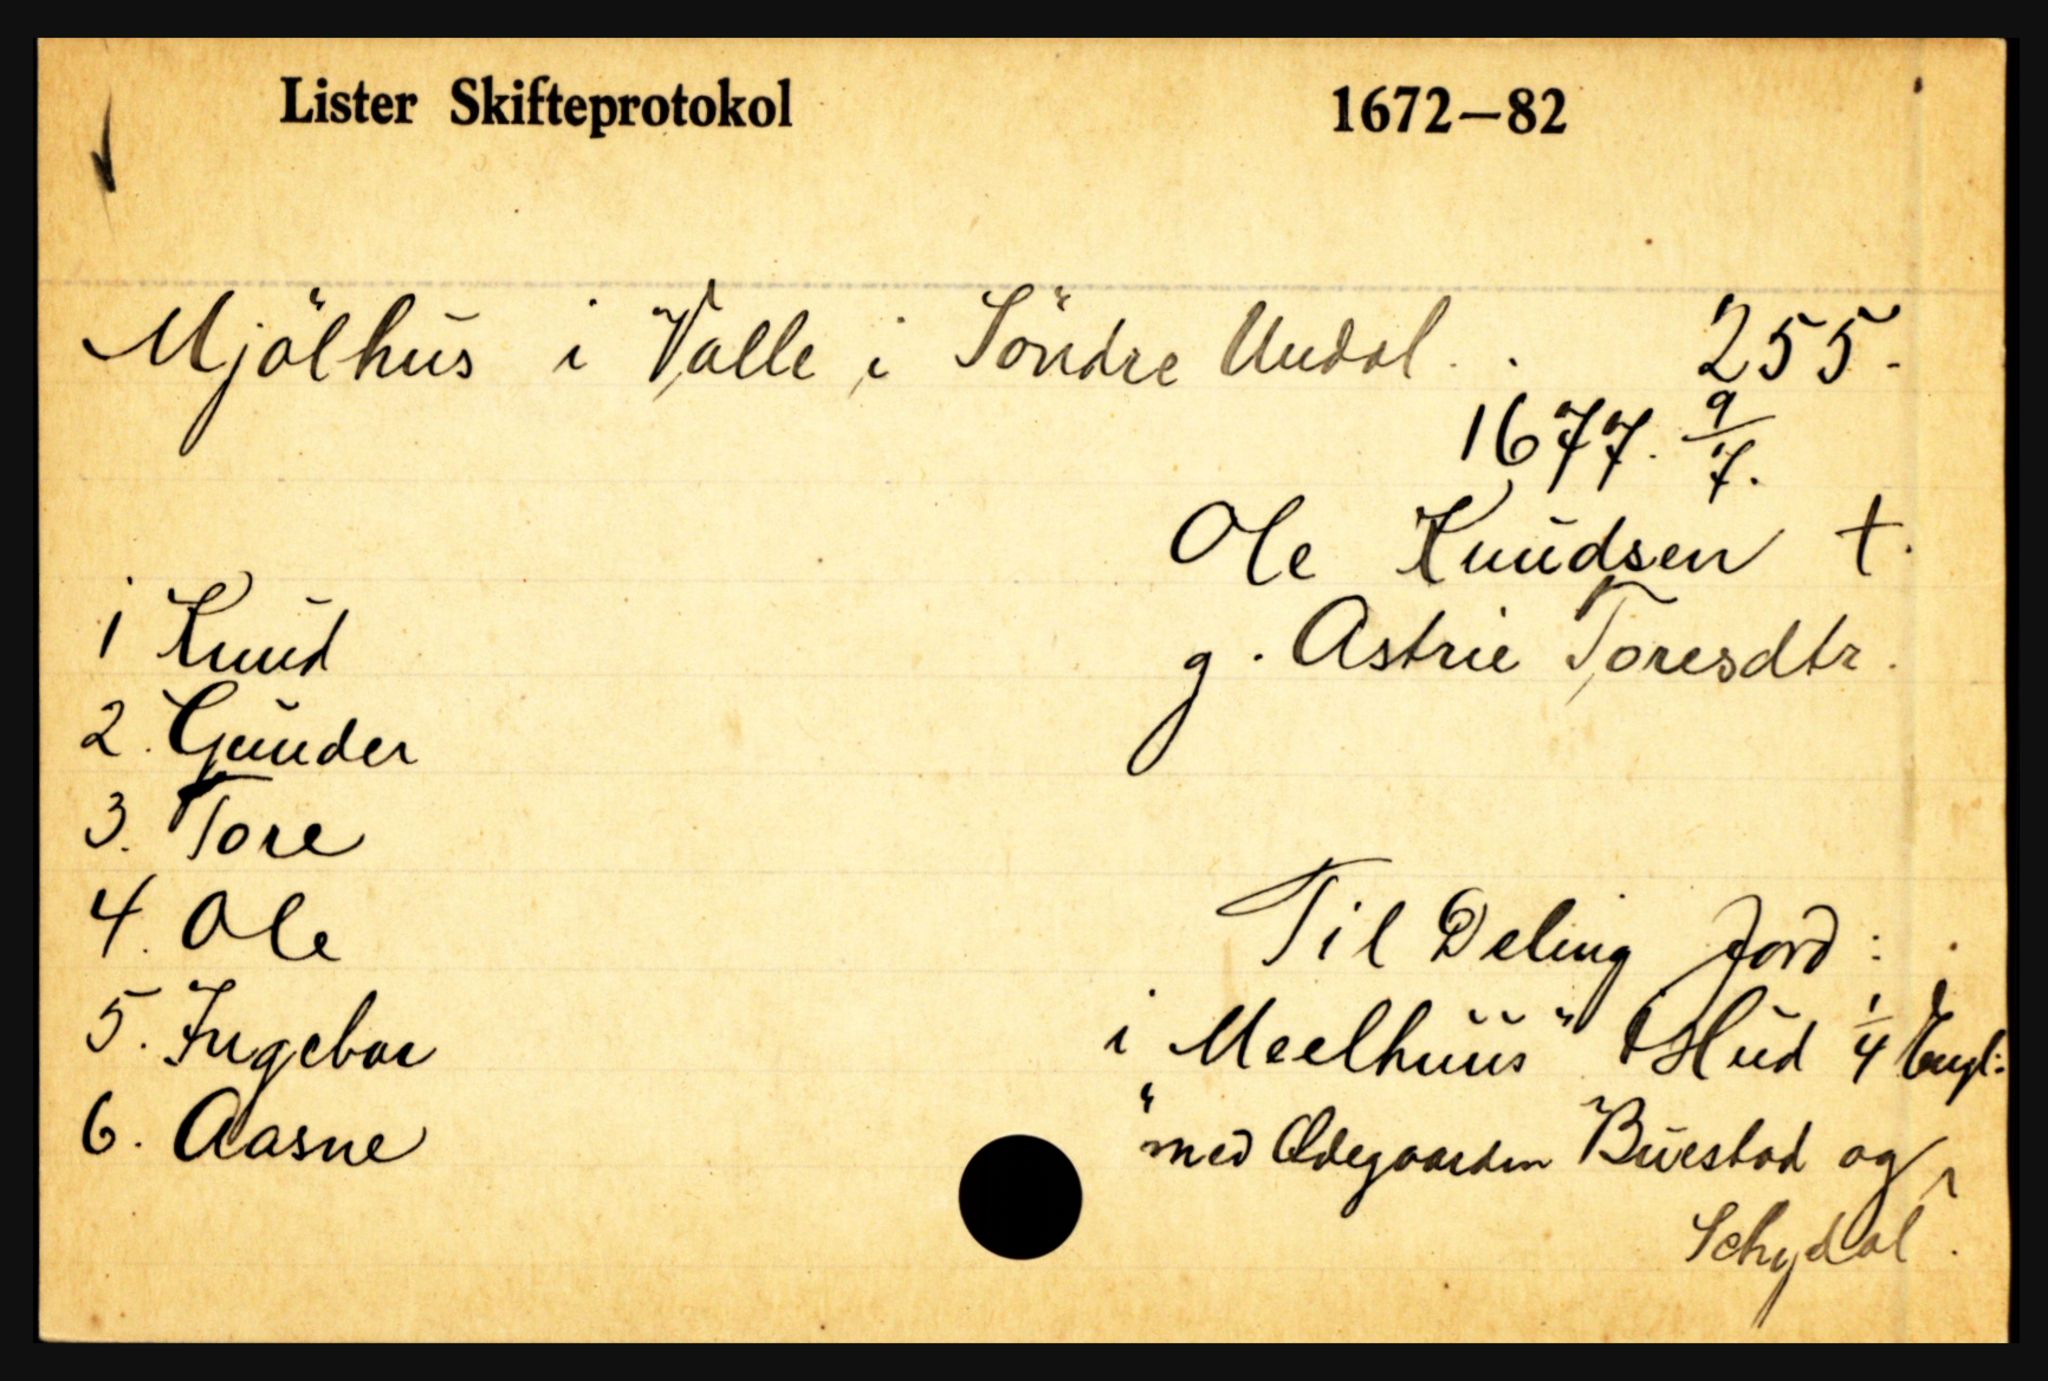 Lister Skifteprotokol 1672—82
Mjölhus i Valle i Söndre Undal. . 255.
1677. 9/7.
Ole Knudsen †.
g. Astrie Toresdtr.
1 Knud
2. Gunder
3. Tore
4. Ole
5. Ingebor
6. Aasne
Til Deling Jord:
i "Meelhuus" 1 Hud 1/4 Engl:
"med Ødegaarden Buestad og
Schydal".